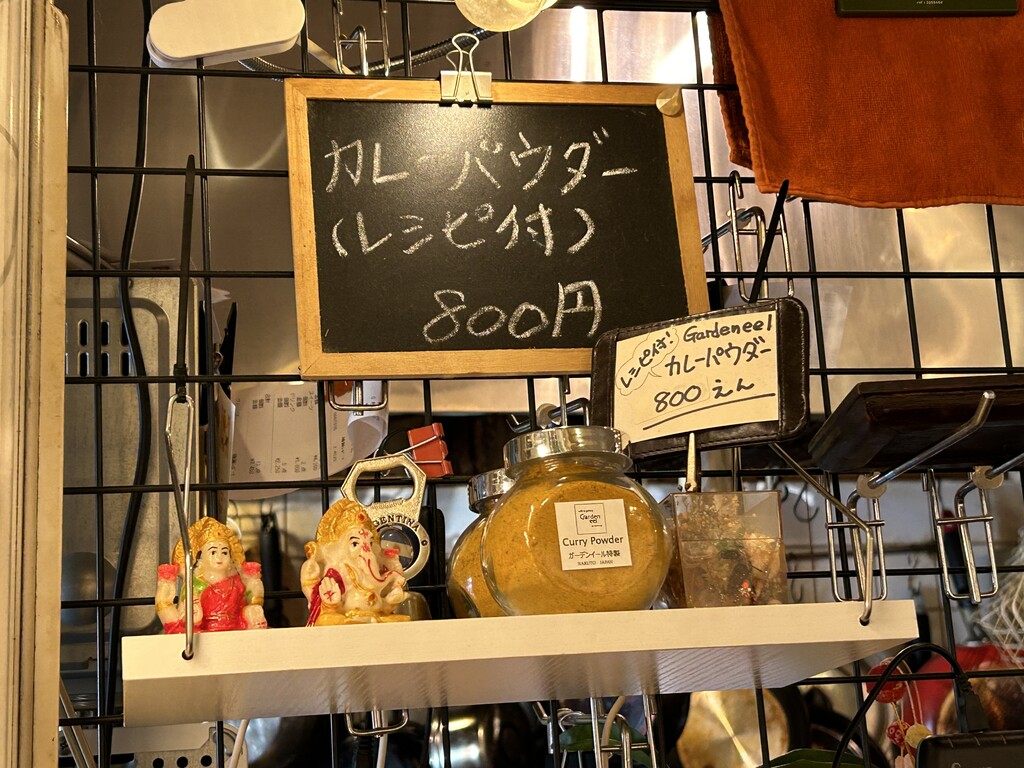 カレーパウダー
(レシピ付)
800円
レシピ付!
Gardeneel
カレーパウダー
800えん
Garden
eel
Curry Powder
ガーデンイール特製